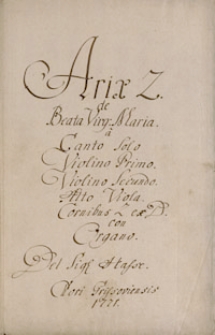 Ariæ 2.
de
Beata Virg: Maria.
à
Canto Solo
Violino Primo.
Violino Secundo.
Alto Viola.
Cornibus ex D.
con
Organo.
Del Sigl Hasse.
Chori
1771.